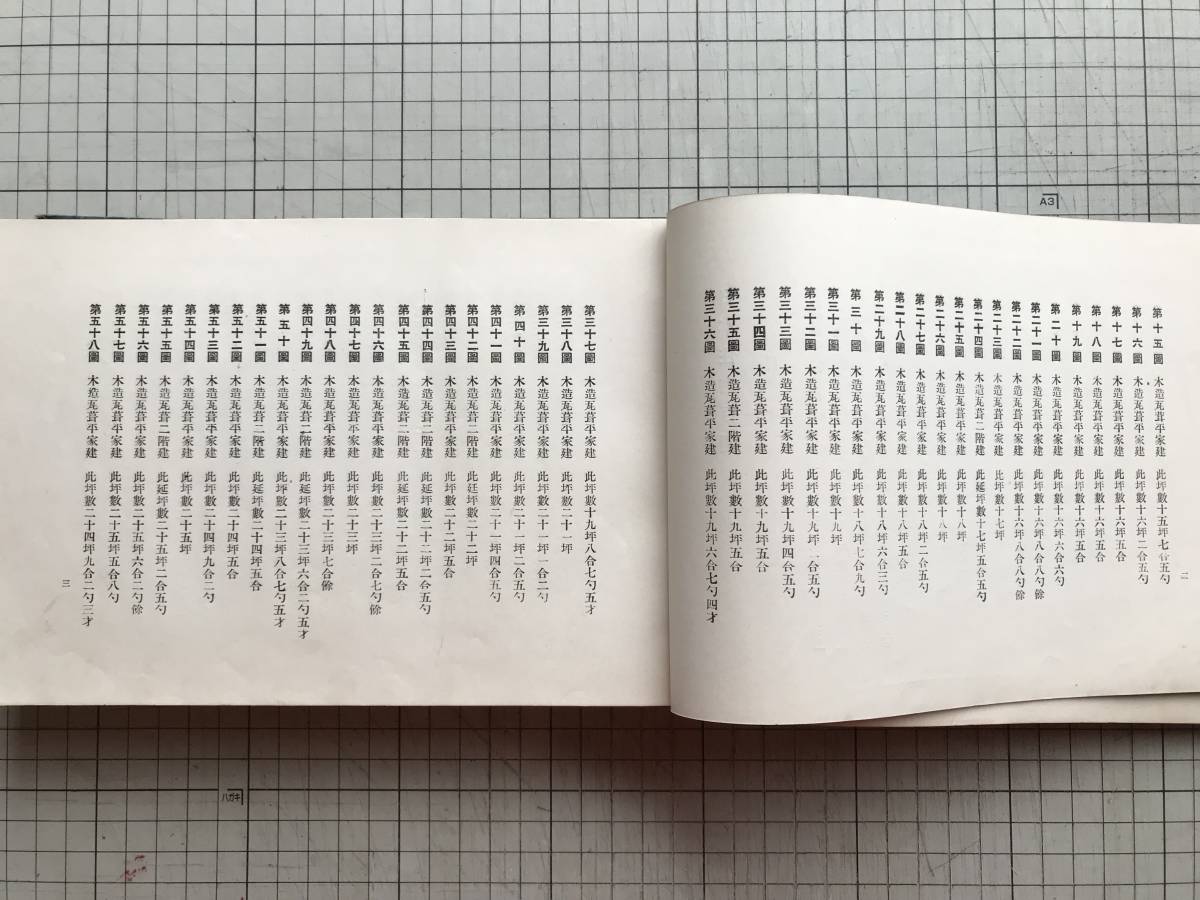 第十五圖 木造瓦葺平家建 此坪數十五坪七合五勺
第十六圖 木造瓦葺平家建 此坪數十六坪二合五勺
第十七圖 木造瓦葺平家建 此坪數十六坪五合
第十八圖 木造瓦葺平家建 此坪數十六坪五合
第十九圖 木造瓦葺平家建 此坪數十六坪五合
第二十圖 木造瓦葺平家建 此坪數十六坪六合六勺
第二十一圖 木造瓦葺平家建 此坪數十六坪八合八勺餘
第二十二圖 木造瓦葺平家建 此坪數十六坪八合八勺餘
第二十三圖 木造瓦葺平家建 此坪數十七坪
第二十四圖 木造瓦葺二階建 此延坪數十七坪五合五勺
第二十五圖 木造瓦葺平家建 此坪數十八坪
第二十六圖 木造瓦葺平家建 此坪數十八坪
第二十七圖 木造瓦葺平家建 此坪數十八坪二合五勺
第二十八圖 木造瓦葺平家建 此坪數十八坪五合
第二十九圖 木造瓦葺平家建 此坪數十八坪六合三勺
第三十圖 木造瓦葺平家建 此坪數十八坪七合九勺
第三十一圖 木造瓦葺平家建 此坪數十九坪
第三十二圖 木造瓦葺平家建 此坪數十九坪一合五勺
第三十三圖 木造瓦葺平家建 此坪數十九坪四合五勺
第三十四圖 木造瓦葺平家建 此坪數十九坪五合
第三十五圖 木造瓦葺二階建 此坪數十九坪五合
第三十六圖 木造瓦葺平家建 此坪數十九坪六合七勺四才
二
第三十七圖 木造瓦葺平家建 此坪數十九坪八合七勺五才
第三十八圖 木造瓦葺平家建 此坪數二十一坪
第三十九圖 木造瓦葺平家建 此坪數二十一坪一合二勺
第四十圖 木造瓦葺平家建 此坪數二十一坪二合五勺
第四十一圖 木造瓦葺平家建 此坪數二十一坪四合五勺
第四十二圖 木造瓦葺二階建 此延坪數二十二坪
第四十三圖 木造瓦葺平家建 此坪數二十二坪五合
第四十四圖 木造瓦葺二階建 此延坪數二十二坪二合五勺
第四十五圖 木造瓦葺二階建 此延坪數二十二坪五合
第四十六圖 木造瓦葺平家建 此坪數二十三坪二合七勺餘
第四十七圖 木造瓦葺平家建 此坪數二十三坪
第四十八圖 木造瓦葺平家建 此坪數二十三坪七合餘
第四十九圖 木造瓦葺二階建 此延坪數二十三坪六合二勺五才
第五十圖 木造瓦葺平家建 此坪數二十三坪八合七勺五才
第五十一圖 木造瓦葺二階建 此延坪數二十四坪五合
第五十二圖 木造瓦葺平家建 此坪數二十四坪五合
第五十三圖 木造瓦葺平家建 此坪數二十四坪九合二勺
第五十四圖 木造瓦葺平家建 此坪數二十五坪
第五十五圖 木造瓦葺二階建 此延坪數二十五坪二合五勺
第五十六圖 木造瓦葺平家建 此坪數二十五坪六合二勺餘
第五十七圖 木造瓦葺平家建 此坪數二十五坪五合八勺
第五十八圖 木造瓦葺平家建 此坪數二十四坪九合二勺三才
三
A3
ハガキ